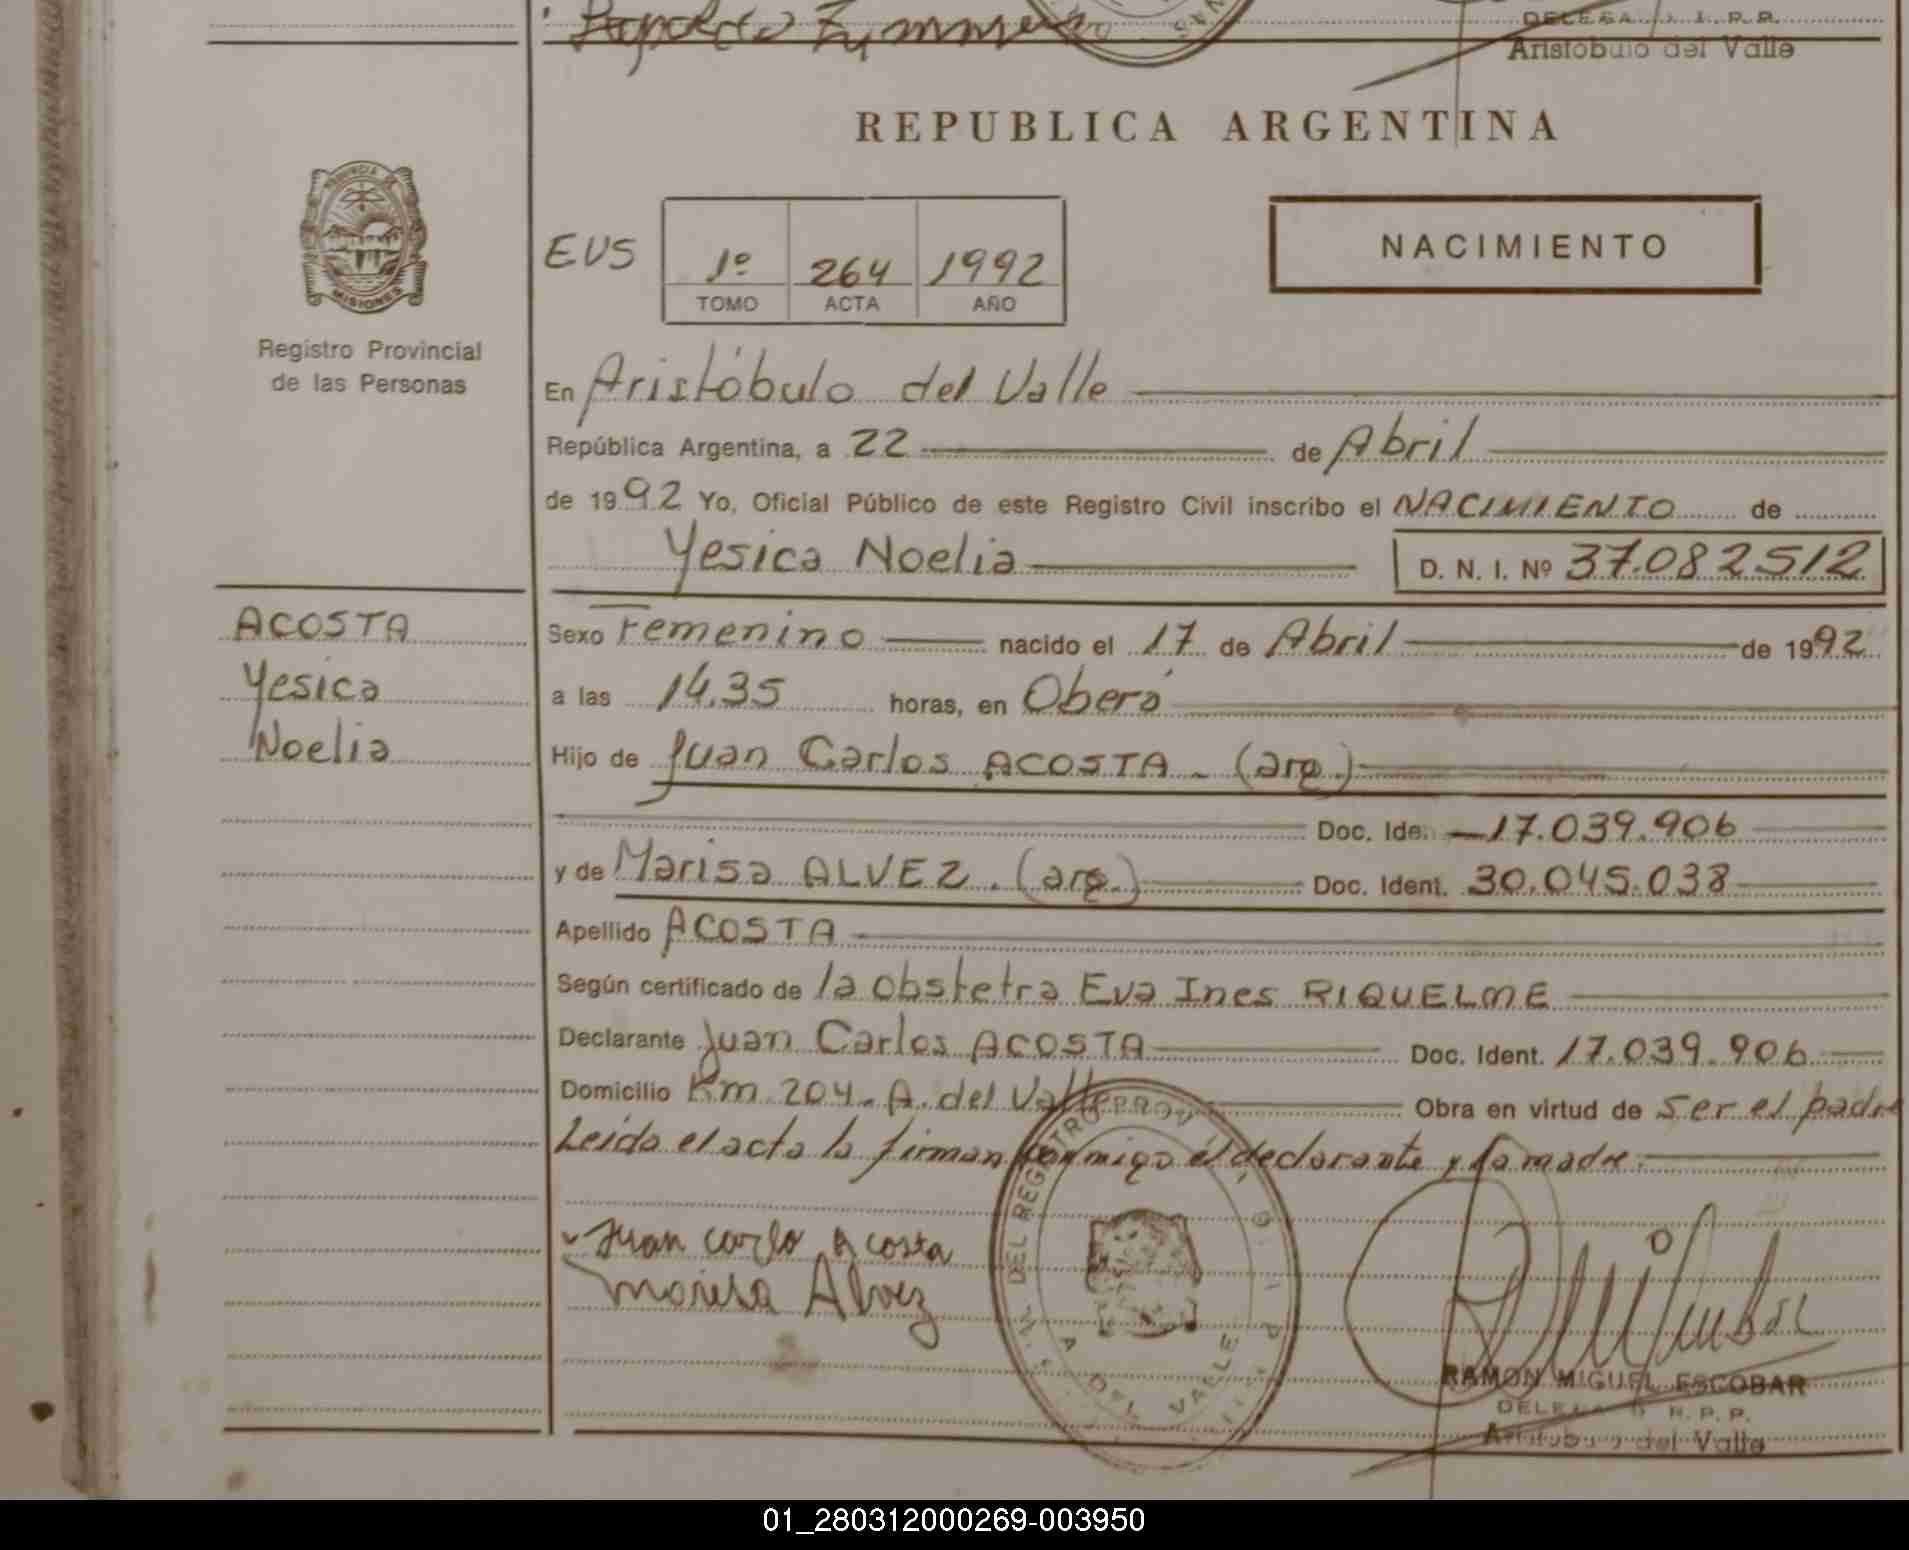 DELEGA
Aristóbulo del Valle
REPUBLICA ARGENTINA
PROVINCIA DE
MISIONES
Registro Provincial
de las Personas
EVS
1º 264 1992
TOMO ACTA AÑO
NACIMIENTO
En Aristóbulo del Valle
República Argentina, a 22 de Abril
de 1992 Yo, Oficial Público de este Registro Civil inscribo el NACIMIENTO de
Yesica Noelia D. N. I. Nº 37.082512
ACOSTA
Yesica
Noelia
Sexo Femenino nacido el 17 de Abril de 1992
a las 14.35 horas, en Oberá
Hijo de Juan Carlos ACOSTA - (arg.)
Doc. Ide. 17.039.906
y de Marisa ALVEZ. (arg.) Doc. Ident. 30.045.038
Apellido ACOSTA
Según certificado de la obstetra Eva Ines RIQUELME
Declarante Juan Carlos ACOSTA Doc. Ident. 17.039.906
Domicilio Km 204 - A. del Valle Obra en virtud de ser el padre
Leída el acta la firman conmigo el declarante y la madre.
Juan carlo Acosta
Marisa Alvez
DEL REGISTRO PROV
DEL VALLE
RAMON MIGUEL ESCOBAR
DELEGA R. P. P.
Aristobulo del Valle
01_280312000269-003950